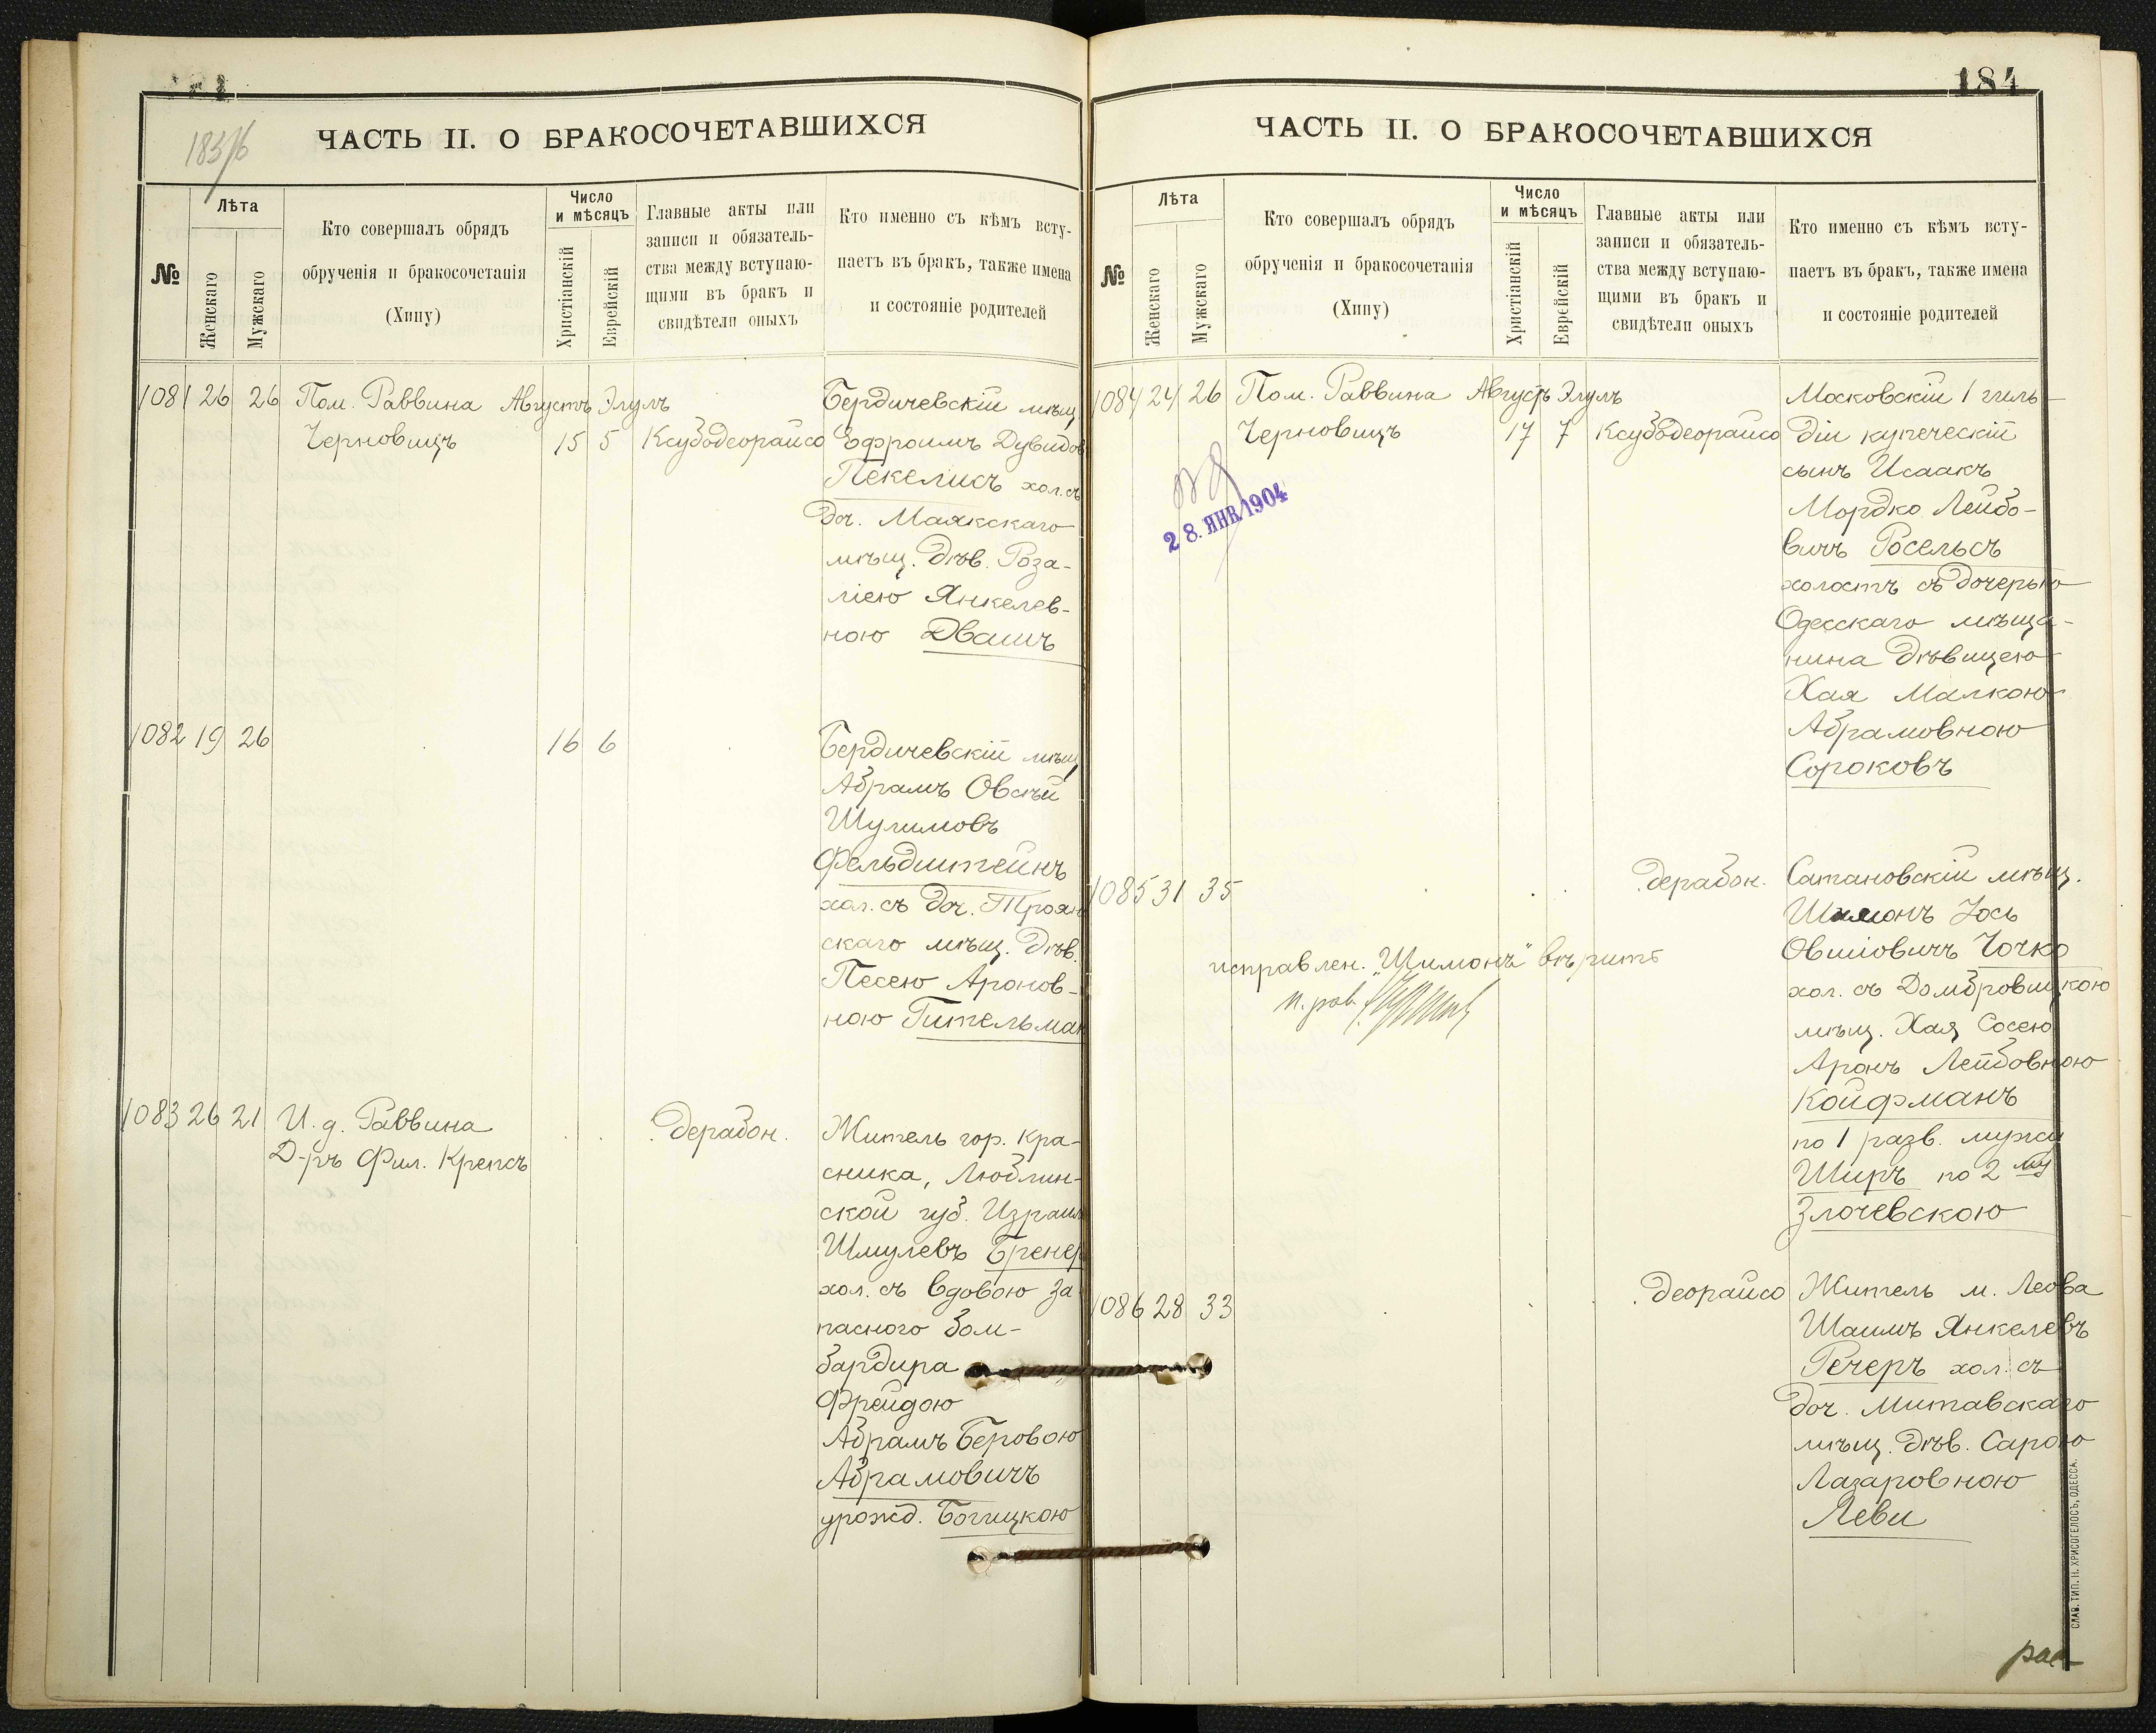 183/б
ЧАСТЬ II. О БРАКОСОЧЕТАВШИХСЯ
№
Лѣта
Женскаго
Мужскаго
Кто совершалъ обрядъ
обрученія и бракосочетанія
(Хипу)
Число
и мѣсяцъ
Христіанскій
Еврейскій
Главные акты или
записи и обязатель-
ства между вступаю-
щими въ бракъ и
свидѣтели оныхъ
Кто именно съ кѣмъ всту-
паетъ въ бракъ, также имена
и состояніе родителей
1081 26 26 Пом. Раввина Августъ Элулъ
Черновицъ 15 5 Ксубодеорайсо
Бердичевскій мѣщ.
Ефроимъ Дувидов
Пекелисъ хол. съ
Доч. Маякскаго
мѣщ. Дѣв. Роза-
ліею Янкелев-
ною Двашъ
1082 19 26 16 6
Бердичевскій мѣщ
Абрамъ Овсѣй
Шулимовъ
Фельдштейнъ
хол. съ Доч. Троян
скаго мѣщ. Дѣв.
Песею Аронов-
ною Гительман
1083 26 21 И. д. Раввина
Д-ръ Фил. Крепсъ
дерабон.
Житель гор. Кра-
сника, Люблин-
ской губ. Израиль
Шмулевъ Бренер
хол. съ вдовою за
пасного бом-
бардира
Фрейдою
Абрамъ Беровою
Абрамовичъ
урожд. Богицкою
184
ЧАСТЬ II. О БРАКОСОЧЕТАВШИХСЯ
№
Лѣта
Женскаго
Мужскаго
Кто совершалъ обрядъ
обрученія и бракосочетанія
(Хипу)
Число
и мѣсяцъ
Христіанскій
Еврейскій
Главные акты или
записи и обязатель-
ства между вступаю-
щими въ бракъ и
свидѣтели оныхъ
Кто именно съ кѣмъ всту-
паетъ въ бракъ, также имена
и состояніе родителей
1084 24 26 Пом. Раввина Августъ Элулъ
Черновицъ 17 7 Ксубодеорайсо
28. ЯНВ. 1904
Московскій 1 гиль-
діи купеческій
сынъ Исаакъ
Мордко Лейбо-
вичъ Росельсъ
холостъ съ Дочерью
Одесскаго мѣща-
нина Дѣвицею
Хая Малкою
Абрамовною
Сороковъ
1085 31 35 дерабон.
исправлен. "Шимонъ" вѣрить
п. рав.
Сатановскій мѣщ.
Шимонъ Іось
Овшіовичъ Чочко
хол. съ Домбровицкою
мѣщ. Хая Сосею
Аронъ Лейбовною
Койфманъ
по 1 разв. мужу
Ширъ по 2 му
Злочевскою
1086 28 33 деорайсо
Житель м. Леова
Шаимъ Янкелевъ
Речеръ хол. съ
доч. Митавскаго
мѣщ. Дѣв. Сарою
Лазаровною
Леви
СЛАВ. ТИП. Н. ХРИСОГЕЛОСЪ, ОДЕССА.